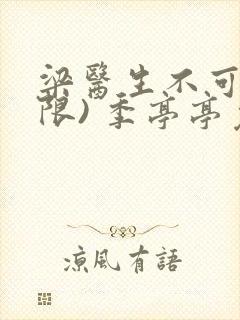 梁醫生不可
限) 季亭亭
涼風有語